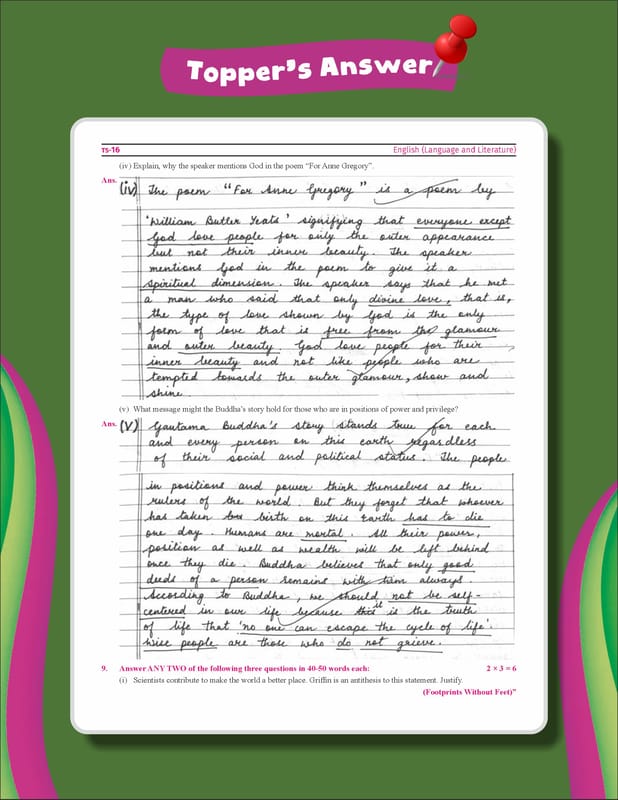 Topper's Answer
TS-16
English (Language and Literature)
(iv) Explain, why the speaker mentions God in the poem “For Anne Gregory”.
Ans. (iv) The poem “For Anne Gregory” is a poem by
'William Butler Yeats' signifying that everyone except
God love people for only the outer appearance
but not their inner beauty. The speaker
mentions God in the poem to give it a
spiritual dimension. The speaker says that he met
a man who said that only divine love, that is,
the type of love shown by God is the only
form of love that is free from the glamour
and outer beauty. God love people for their
inner beauty and not like people who are
tempted towards the outer glamour, show and
shine.
(v) What message might the Buddha's story hold for those who are in positions of power and privilege?
Ans. (V) Gautama Buddha's story stands true for each
and every person on this earth regardless
of their social and political status. The people
in positions and power think themselves as the
rulers of the world. But they forget that whoever
has taken birth on this Earth has to die
one day. Humans are mortal. All their power,
position as well as wealth will be left behind
once they die. Buddha believes that only good
deeds of a person remains with him always.
According to Buddha, we should not be self-
centered in our life because it is the truth
of life that 'no one can escape the cycle of life'.
Wise people are those who do not grieve.
9. Answer ANY TWO of the following three questions in 40-50 words each: 2 × 3 = 6
(i) Scientists contribute to make the world a better place. Griffin is an antithesis to this statement. Justify.
(Footprints Without Feet)”